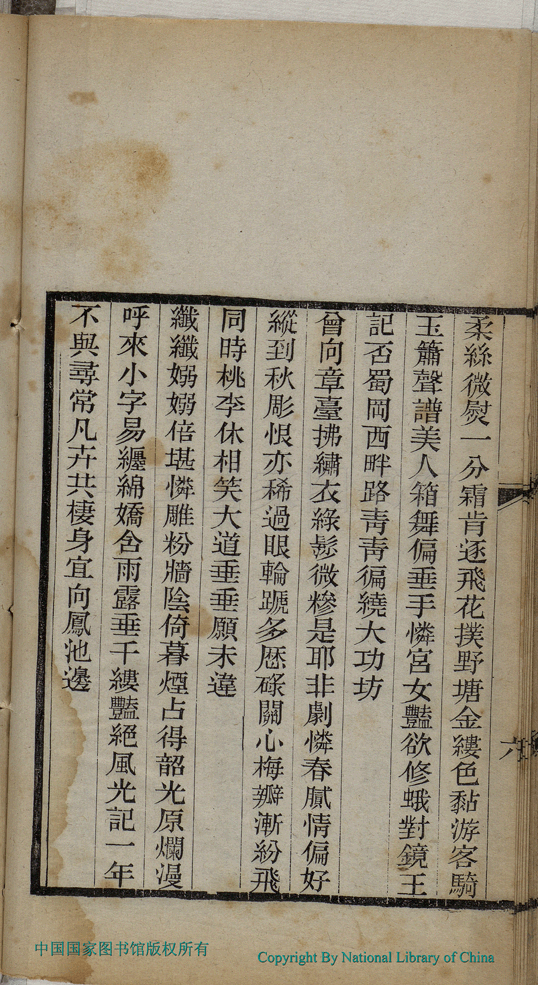 柔絲微熨一分霜肯逐飛花撲野塘金縷色黏游客騎
玉簫聲譜美人箱舞偏垂手憐宮女豔欲修蛾對鏡王
記否蜀岡西畔路靑靑徧繞大功坊
曾向章臺拂繡衣綠鬖微糝是耶非劇憐春膩情偏好
縱到秋彫恨亦稀過眼輪蹏多歴碌關心梅瓣漸紛飛
同時桃李休相笑大道垂垂願未違
纖纖嫋嫋倍堪憐雕粉牆陰倚暮煙占得韶光原爛漫
呼來小字易纏綿嬌含雨露垂千縷豔絕風光記一年
不與尋常凡卉共棲身宜向鳳池邊
六
中国国家图书馆版权所有
Copyright By National Library of China